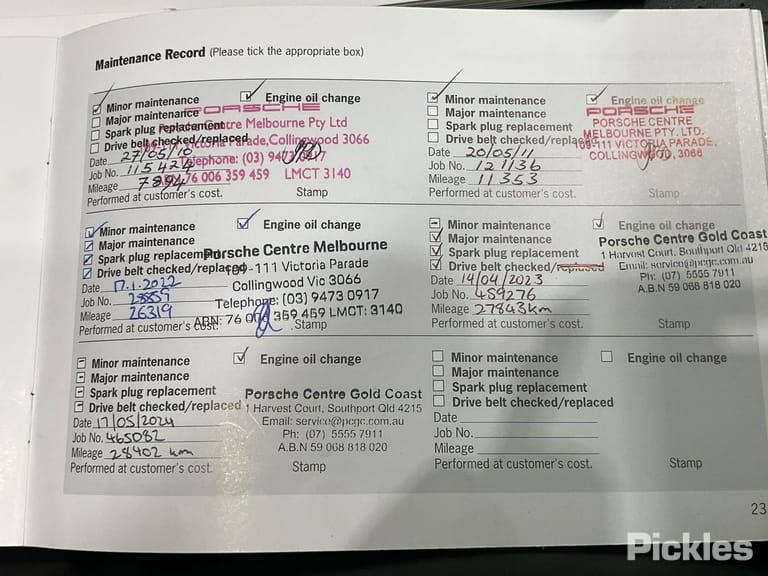 Maintenance Record (Please tick the appropriate box)
Minor maintenance Engine oil change
Major maintenance PORSCHE
Spark plug replacement Porsche Centre Melbourne Pty Ltd
Drive belt checked/replaced Victoria Parade, Collingwood 3066
Date 27/05/10 Telephone: (03) 9473 0917
Job No. 115424
Mileage 7894 76 006 359 459 LMCT 3140
Performed at customer's cost. Stamp
Minor maintenance Engine oil change
Major maintenance PORSCHE
Spark plug replacement PORSCHE CENTRE
Drive belt checked/replaced MELBOURNE PTY. LTD.
Date 20/05/11 109-111 VICTORIA PARADE,
Job No. 121136 COLLINGWOOD, 3066
Mileage 11353
Performed at customer's cost. Stamp
Minor maintenance Engine oil change
Major maintenance
Spark plug replacement Porsche Centre Melbourne
Drive belt checked/replaced 109-111 Victoria Parade
Date 17.1.2022 Collingwood Vic 3066
Job No. 28859 Telephone: (03) 9473 0917
Mileage 26319 ABN: 76 006 359 459 LMCT: 3140
Performed at customer's cost. Stamp
Minor maintenance Engine oil change
Major maintenance Porsche Centre Gold Coast
Spark plug replacement 1 Harvest Court, Southport Qld 4215
Drive belt checked/replaced Email: service@pcgc.com.au
Date 14/04/2023 Ph: (07) 5555 7911
Job No. 459276 A.B.N 59 068 818 020
Mileage 27843km
Performed at customer's cost. Stamp
Minor maintenance Engine oil change
Major maintenance
Spark plug replacement Porsche Centre Gold Coast
Drive belt checked/replaced 1 Harvest Court, Southport Qld 4215
Date 17/05/2024 Email: service@pcgc.com.au
Job No. 465082 Ph: (07) 5555 7911
Mileage 28402 km A.B.N 59 068 818 020
Performed at customer's cost. Stamp
Minor maintenance Engine oil change
Major maintenance
Spark plug replacement
Drive belt checked/replaced
Date
Job No.
Mileage
Performed at customer's cost. Stamp
23
Pickles